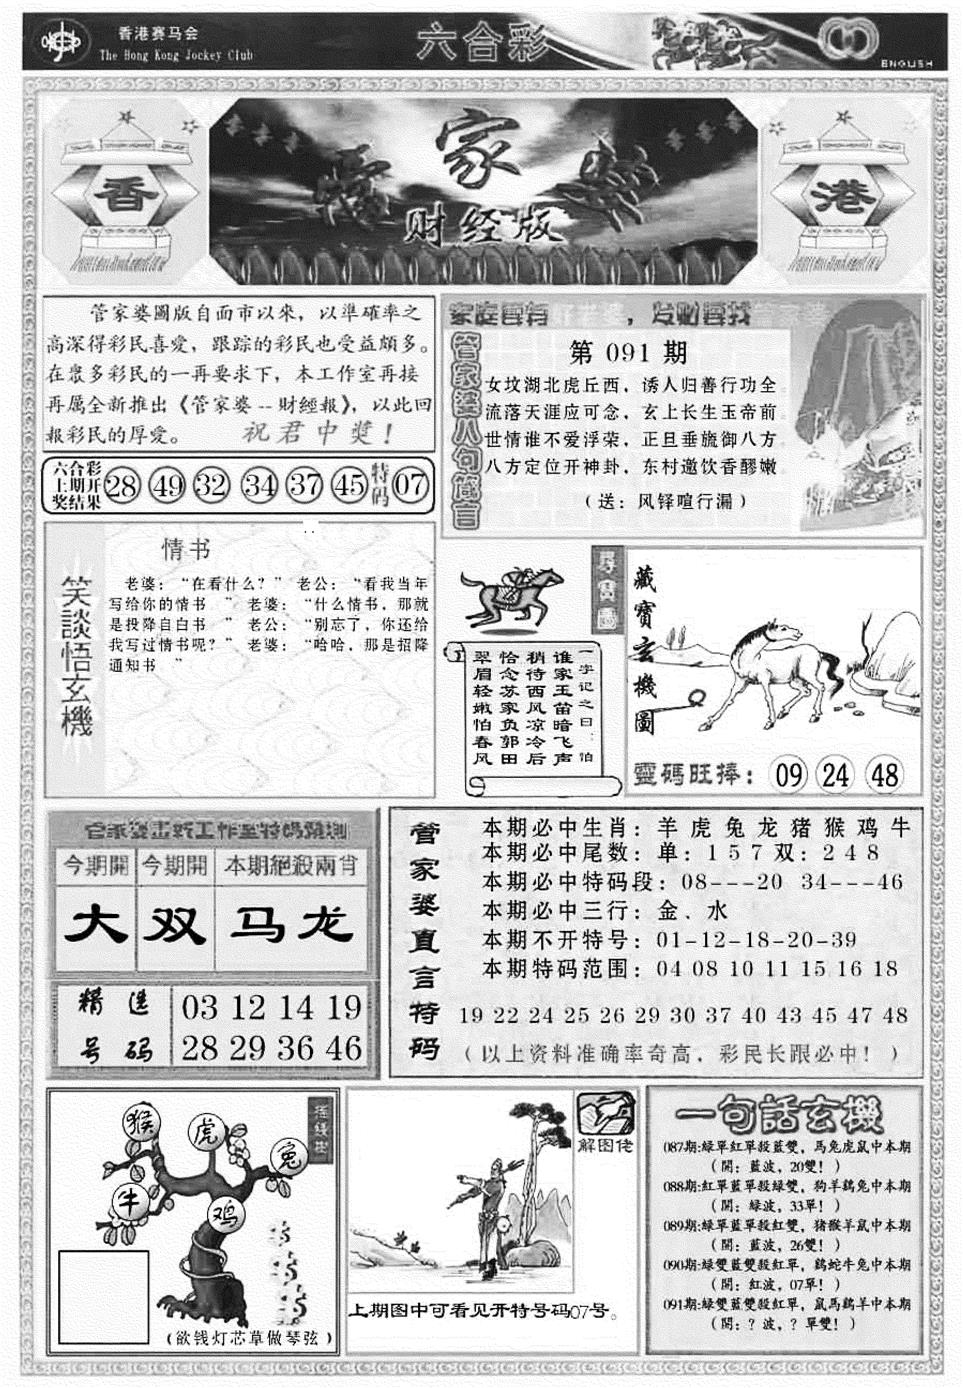 香港赛马会
The Hong Kong Jockey Club
六合彩
ENGLISH
香
港
管家婆
财经版
管家婆圖版自面市以來，以準確率之
高深得彩民喜愛，跟踪的彩民也受益頗多。
在衆多彩民的一再要求下，本工作室再接
再厲全新推出《管家婆--財經報》，以此回
報彩民的厚愛。 祝君中獎！
六合彩
上期开
奖结果
28 49 32 34 37 45 特码 07
管家婆八句箴言
第 091 期
女坟湖北虎丘西，诱人归善行功全
流落天涯应可念，玄上长生玉帝前
世情谁不爱浮荣，正旦垂旒御八方
八方定位开神卦，东村邀饮香醪嫩
（送：风铎喧行漏）
笑談悟玄機
情书
老婆：“在看什么？” 老公：“看我当年
写给你的情书 ” 老婆：“什么情书，那就
是投降自白书 ” 老公：“别忘了，你还给
我写过情书呢？” 老婆：“哈哈，那是招降
通知书 ”
尋寶圖
一字记之曰：怕
谁家玉笛暗飞声
稍待西风凉冷后
恰念苏家负郭田
翠眉轻嫩怕春风
藏寶玄機圖
靈碼旺捧：09 24 48
今期開 今期開 本期絕殺兩肖
大 双 马龙
精选
号码
03 12 14 19
28 29 36 46
管家婆直言特码
本期必中生肖：羊虎兔龙猪猴鸡牛
本期必中尾数：单：157 双：248
本期必中特码段：08---20 34---46
本期必中三行：金、水
本期不开特号：01-12-18-20-39
本期特码范围：04 08 10 11 15 16 18
19 22 24 25 26 29 30 37 40 43 45 47 48
（以上资料准确率奇高，彩民长跟必中！）
猴
虎
兔
牛
鸡
摇钱樹
（欲钱灯芯草做琴弦）
解图佬
上期图中可看见开特号码07号。
一句話玄機
087期:綠單紅單殺藍雙，馬兔虎鼠中本期
（開：藍波，20雙！）
088期:紅單藍單殺綠雙，狗羊鷄兔中本期
（開：綠波，33單！）
089期:綠單藍單殺紅雙，猪猴羊鼠中本期
（開：藍波，26雙！）
090期:綠雙藍雙殺紅單，鷄蛇牛兔中本期
（開：紅波，07單！）
091期:綠雙藍雙殺紅單，鼠馬鷄羊中本期
（開：？波，？單雙！）